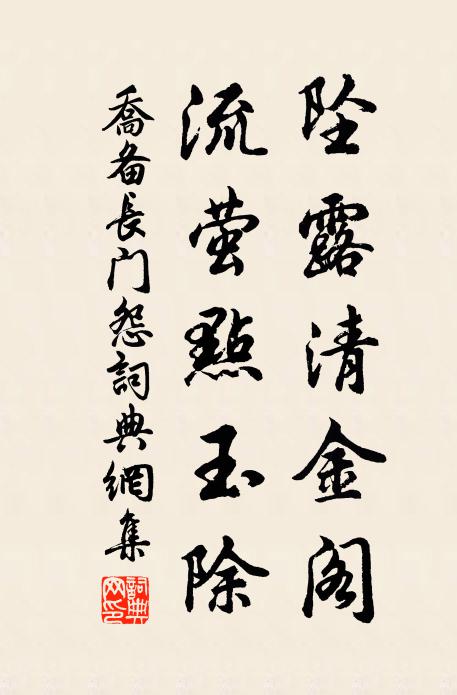 坠露清金阁
流萤點玉除
喬备長门怨詞典網集
詞典网印